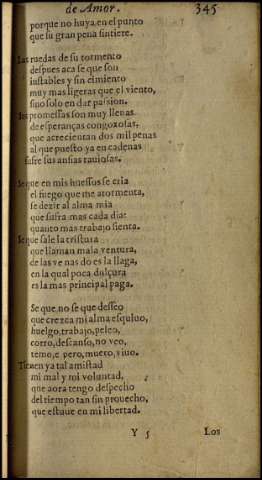 de Amor. 345
porque no huya en el punto
que su gran pena sintiere.
Las ruedas de su tormento
despues aca se que son
instables y sin cimiento
muy mas ligeras que el viento,
sino solo en dar passion.
Sus promessas son muy llenas
de esperanças congoxosas,
que acrecientan dos mil penas
al que puesto ya en cadenas
sufre sus ansias rauiosas.
Se que en mis huessos se cria
el fuego que me atormenta,
se dezir al alma mia
que sufra mas cada dia:
quanto mas trabajo sienta.
Se que sale la tristura
que llaman mala ventura,
de las venas do es la llaga,
en la qual poca dulçura
es la mas principal paga.
Se que no se que desseo
que crezca mi alma esquiuo,
huelgo, trabajo, peleo,
corro, descanso, no veo,
temo, espero, muero, viuo.
Tienen ya tal amistad
mi mal y mi voluntad,
que aora tengo despecho
del tiempo tan sin prouecho,
que estuue en mi libertad.
Y 5 Los